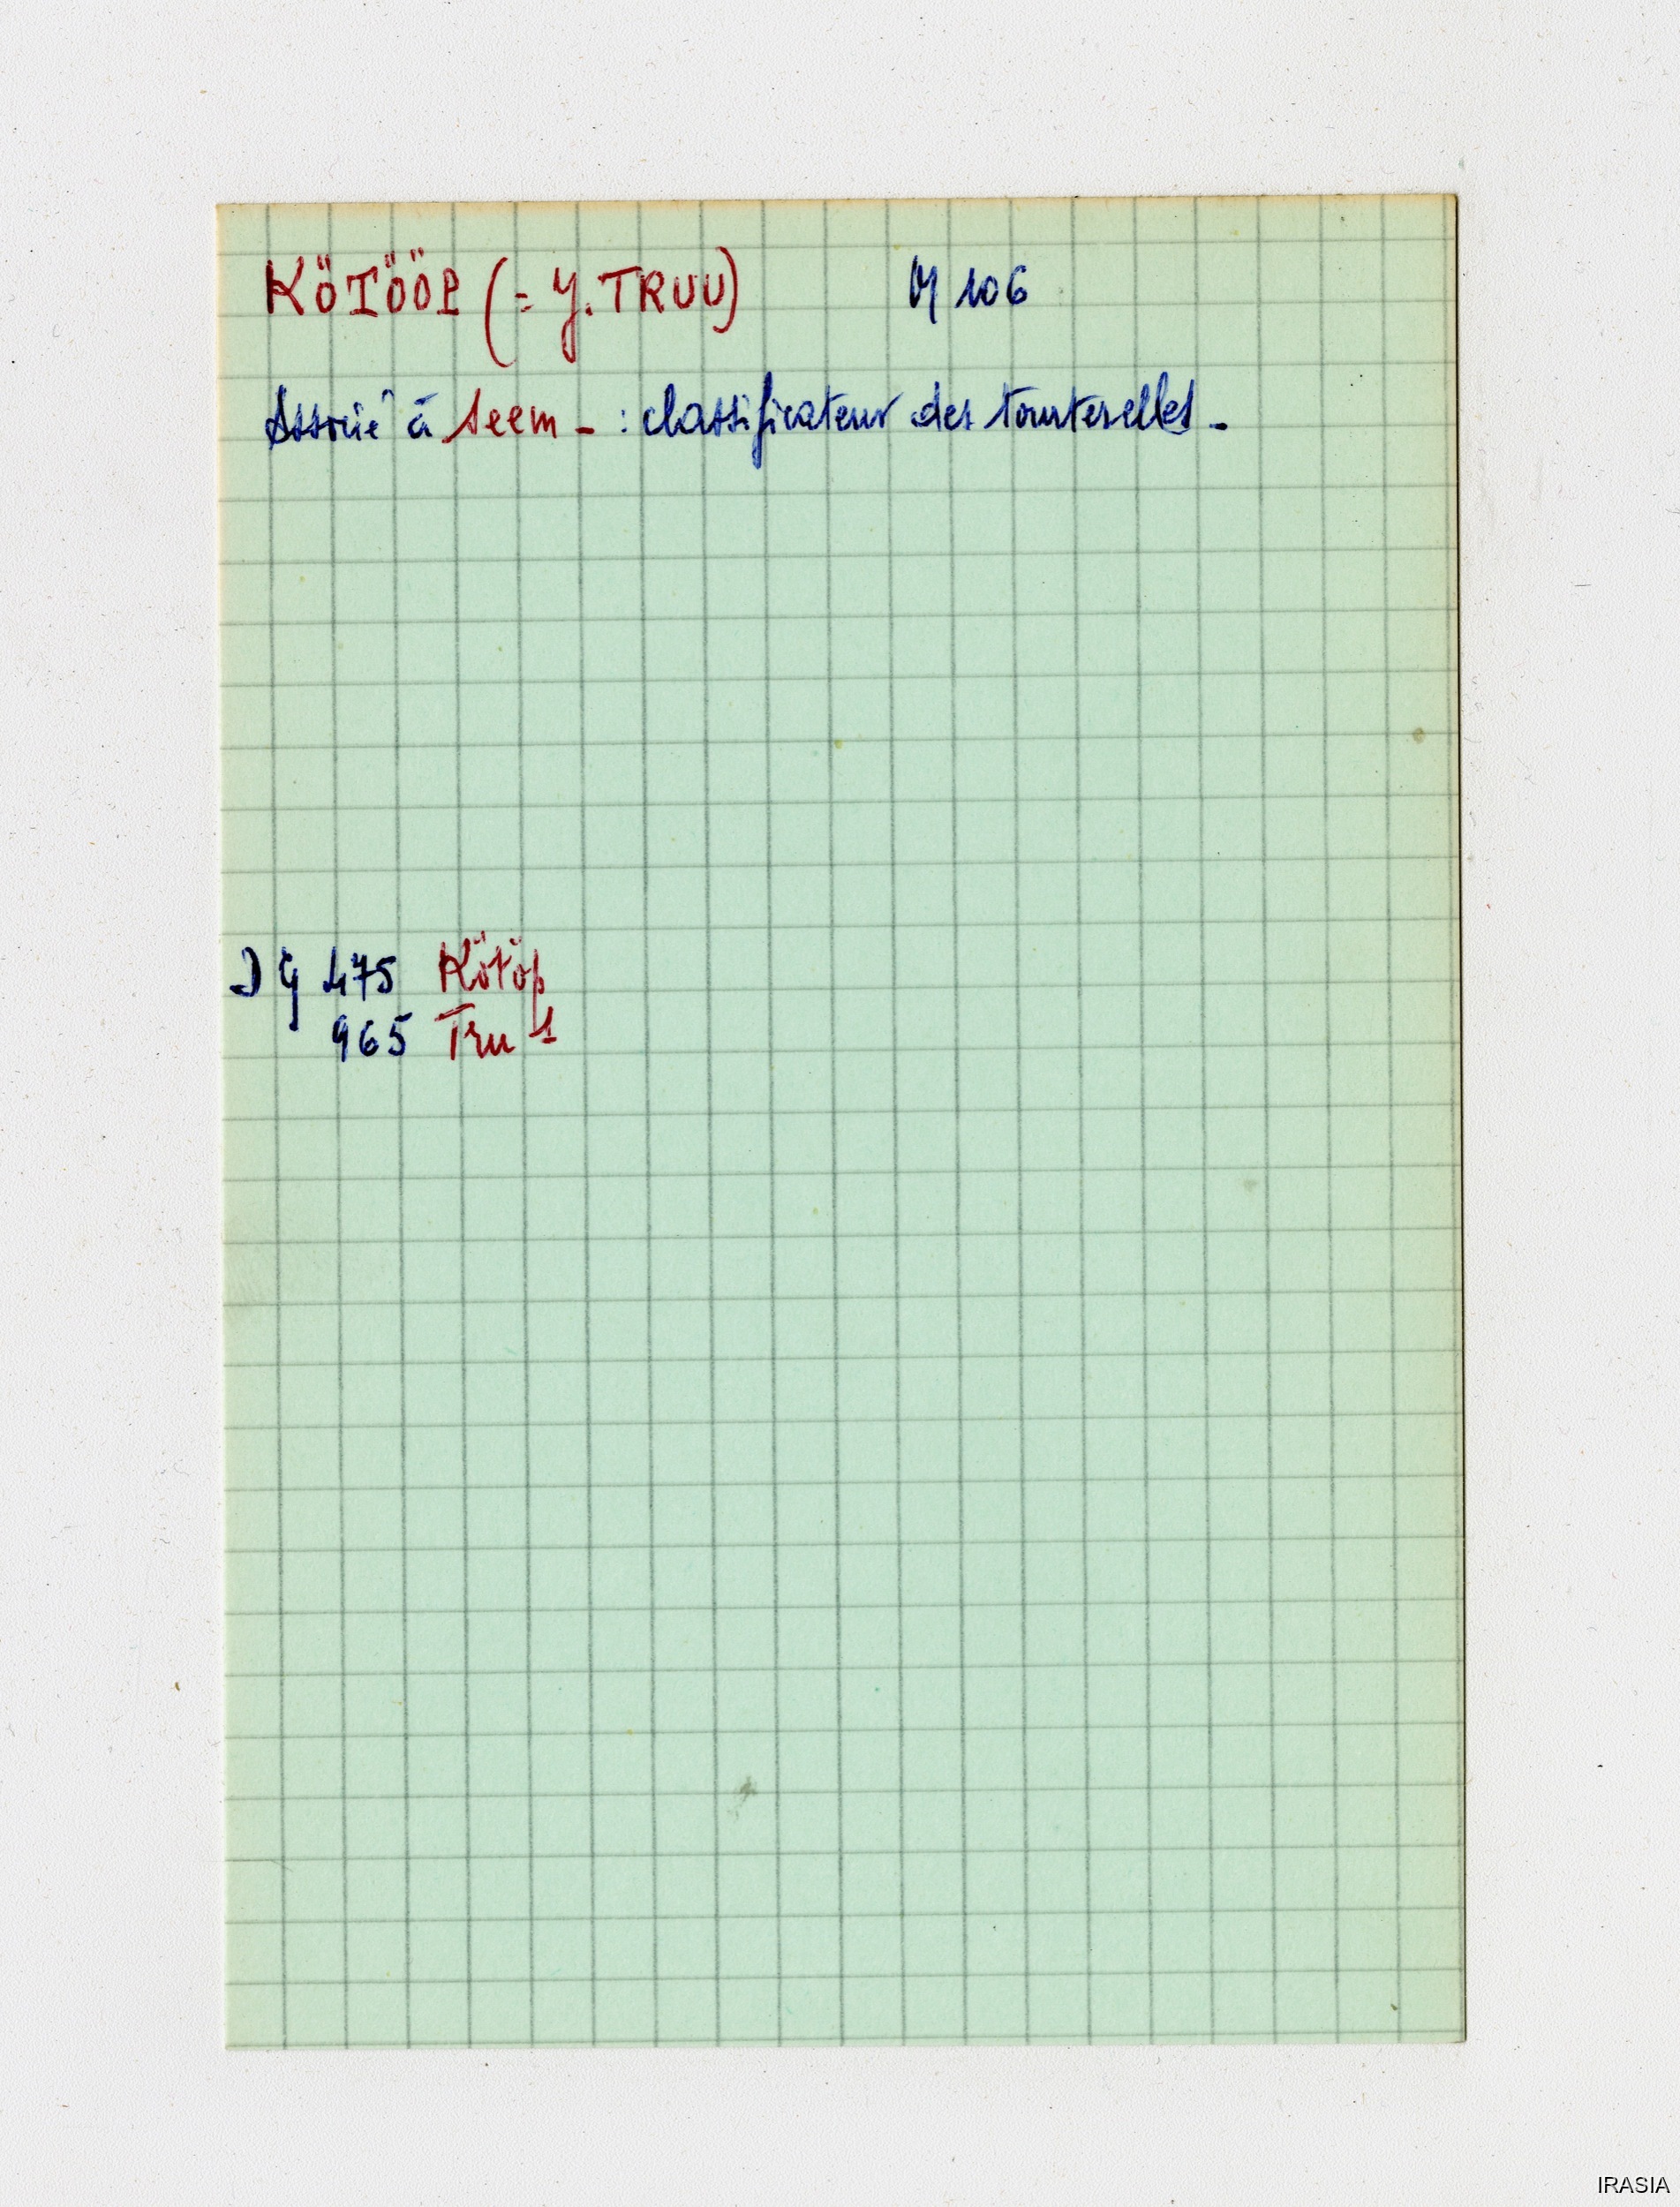 KÖTÖÖP (= Y. TRUU) M 106
Associé à seem - : classificateur des tourterelles -
DG 475 Kötöp
965 Tru 1
IRASIA